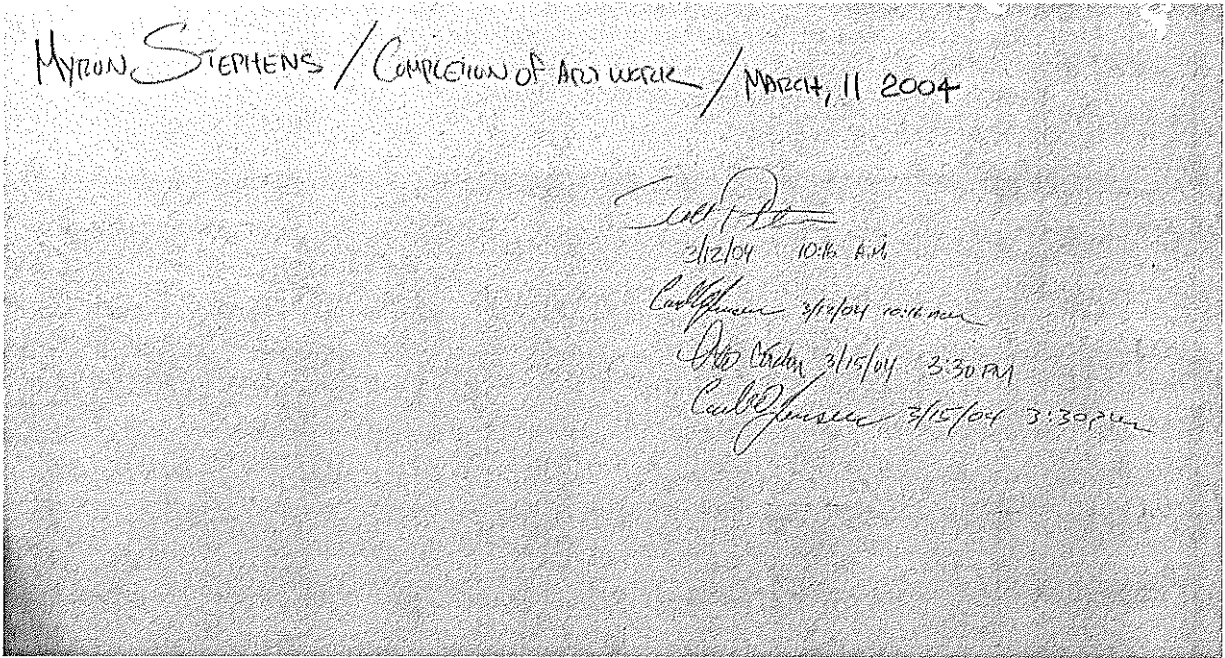 MYRON STEPHENS / COMPLETION of ART WORK / MARCH, 11 2004
Scott
3/12/04 10:16 A.M
Carl Jensen 3/12/04 10:16 am
3/15/04 3:30 PM
Carl O Jensen 3/15/04 3:30 pm